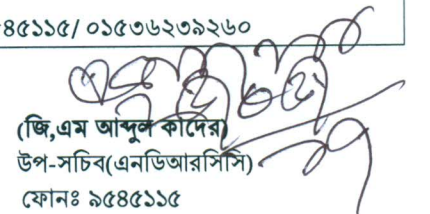 ৪৫১১৫/ ০১৫৩৬২৩৯২৬০
(জি,এম আব্দুল কাদের)
উপ-সচিব(এনডিআরসিসি)
ফোনঃ ৯৫৪৫১১৫